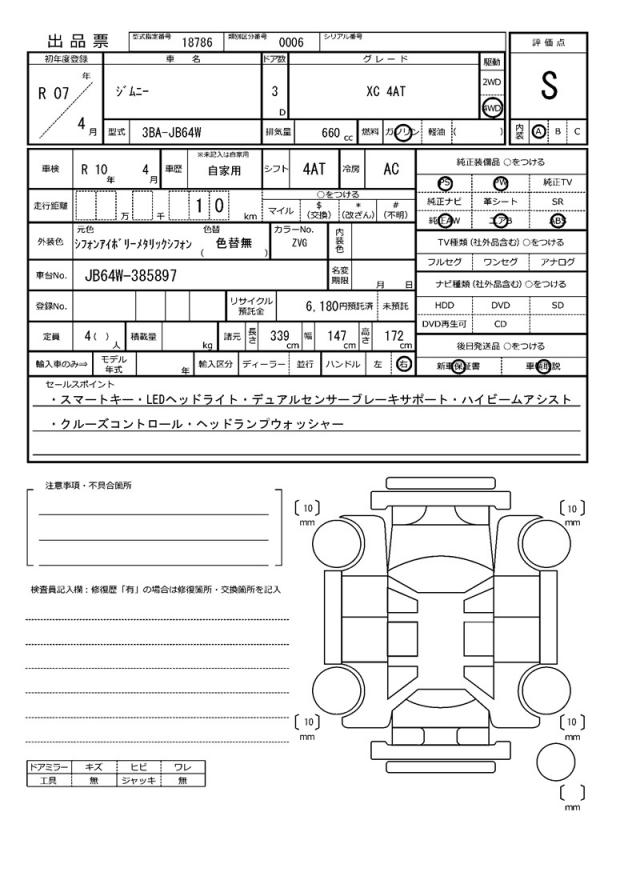 出品票
型式指定番号 18786 類別区分番号 0006 シリアル番号
評価点
S
初年度登録 車名 ドア数 グレード 駆動
R 07 年 4 月
ｼﾞﾑﾆｰ 3 D XC 4AT 2WD 4WD
型式 3BA-JB64W 排気量 660 cc 燃料 ガソリン 軽油 ( )
内装 A B C
車検 R 10 年 4 月 車歴 ※未記入は自家用 自家用 シフト 4AT 冷房 AC
純正装備品 ○をつける
PS PW 純正TV
純正ナビ 革シート SR
純正AW エアB ABS
走行距離 万 千 1 0 km
○をつける
マイル $ (交換) * (改ざん) # (不明)
外装色 元色 ｼﾌｫﾝｱｲﾎﾞﾘｰﾒﾀﾘｯｸｼﾌｫﾝ 色替 ( 色替無 ) カラーNo. ZVG 内装色
TV種類 (社外品含む) ○をつける
フルセグ ワンセグ アナログ
車台No. JB64W-385897 名変期限 月 日
ナビ種類 (社外品含む) ○をつける
HDD DVD SD
DVD再生可 CD
登録No. リサイクル預託金 6,180円預託済 未預託
定員 4( ) 人 積載量 kg 諸元 長さ 339 cm 幅 147 cm 高さ 172 cm
後日発送品 ○をつける
新車保証書 車輌取説
輸入車のみ⇒ モデル年式 年 輸入区分 ディーラー 並行 ハンドル 左 右
セールスポイント
・スマートキー・LEDヘッドライト・デュアルセンサーブレーキサポート・ハイビームアシスト
・クルーズコントロール・ヘッドランプウォッシャー
注意事項・不具合箇所
検査員記入欄：修復歴「有」の場合は修復箇所・交換箇所を記入
〔10〕 mm
〔10〕 mm
〔10〕 mm
〔10〕 mm
〔 〕 mm
ドアミラー キズ ヒビ ワレ
工具 無 ジャッキ 無